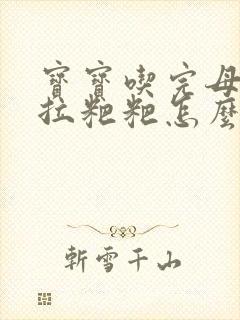 寶寶喫完母
拉粑粑怎麼
斬雪千山